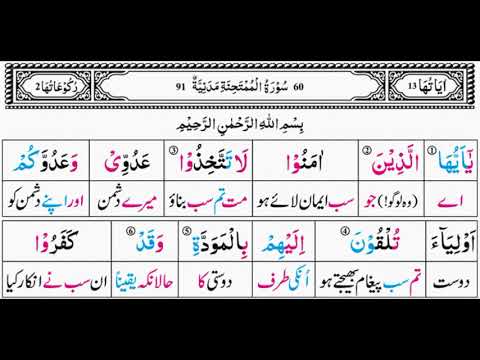 اٰيَاتُهَا 13 60 سُوْرَةُ الْمُمْتَحِنَةِ مَدَنِيَّةٌ 91 رُكُوْعَاتُهَا 2
بِسْمِ اللّٰهِ الرَّحْمٰنِ الرَّحِيْمِ
يٰۤاَيُّهَا ① الَّذِيْنَ ② اٰمَنُوْا لَا تَتَّخِذُوْا ③ عَدُوِّيْ وَعَدُوَّكُمْ
اے (وہ لوگو!) جو سب ایمان لائے ہو مت تم سب بناؤ میرے دشمن اور اپنے دشمن کو
اَوْلِيَآءَ تُلْقُوْنَ ④ اِلَيْهِمْ بِالْمَوَدَّةِ ⑤ وَقَدْ ⑥ كَفَرُوْا
دوست تم سب پیغام بھیجتے ہو اُنکی طرف دوستی کا حالانکہ یقیناً ان سب نے انکار کیا